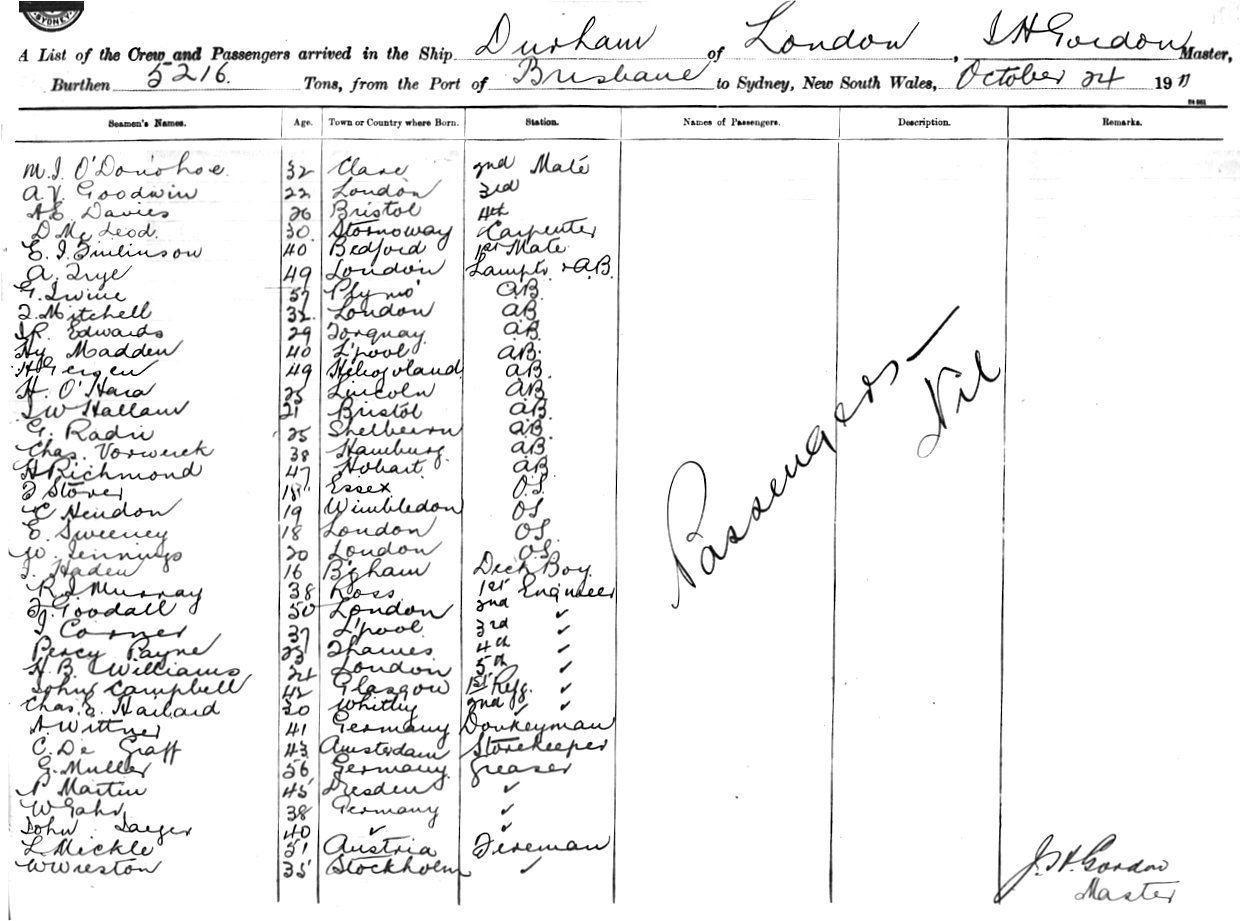 SYDNEY
A List of the Crew and Passengers arrived in the Ship Durham of London, J H Gordon Master,
Burthen 5216 Tons, from the Port of Brisbane to Sydney, New South Wales, October 24 1911
Seamen's Names. Age. Town or Country where Born. Station. Names of Passengers. Description. Remarks.
M.J. O'Donohoe 32 Clare 2nd Mate
A.V. Goodwin 22 London 3rd
A.E. Davies 26 Bristol 4th
D McLeod. 30 Stornoway Carpenter
E. J. Timlinson 40 Bedford 1st Mate
A. Frye 49 London Lamptr & A.B.
G. Irvine 57 Plymo' AB
F. Mitchell 32 London AB
J.R. Edwards 29 Torquay AB
Hy Madden 40 L'pool AB
H Gergen 49 Heligoland AB
H. O'Hara 25 Lincoln AB
J W Hallam 21 Bristol AB
G. Radii 25 AB
Chas. Vorwerck 38 Hamburg AB
H Richmond 47 Hobart AB
F Storer 18 Essex O.S.
C Hendon 19 Wimbledon OS
E. Sweeney 18 London OS
W. Jennings 20 London O.S
J. Haden 16 B'gham Deck Boy
R.J. Murray 38 Ross 1st Engineer
F. Goodall 50 London 2nd ✓
J Corner 37 L'pool 3rd ✓
Percy Payne 23 Thames 4th ✓
H. B. Williams 24 London 5th ✓
John Campbell 42 Glasgow 1st Refg. ✓
Chas. E. Hailard 30 Whitby 2nd ✓ ✓
A. Wittner 41 Germany Donkeyman
C. De Graff 43 Amsterdam Storekeeper
G. Muller 56 Germany Greaser
P Martin 45 Dresden ✓
W Gahr 38 Germany ✓
John Jaeger 40 ✓ ✓
L. Mickle 51 Austria Fireman
W Wreston 35 Stockholm ✓
Passengers — Nil
J. H. Gordon
Master